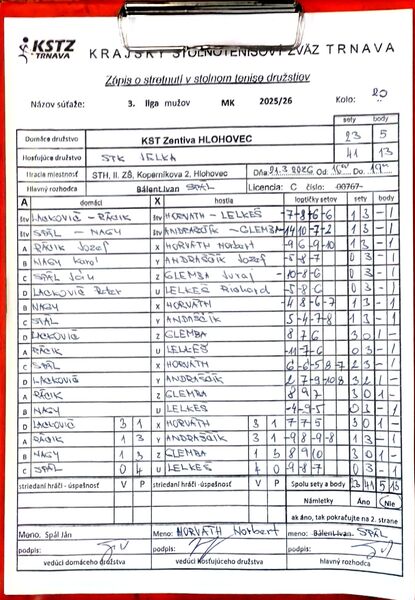 KSTZ TRNAVA KRAJSKÝ STOLNOTENISOVÝ ZVÄZ TRNAVA
Zápis o stretnutí v stolnom tenise družstiev
Názov súťaže: 3. liga mužov MK 2025/26 Kolo: 20
sety body
Domáce družstvo KST Zentiva HLOHOVEC 23 5
Hosťujúce družstvo STK JELKA 41 13
Hracia miestnosť STH, II. ZŠ, Koperníkova 2, Hlohovec Dňa 21.3.2026 Od: 16 Do: 19
Hlavný rozhodca Bálent Ivan SPÁL Licencia: C číslo: 00767-
A domáci X hostia loptičky setov sety body
štv LACKOVIČ - RÁCIK štv HORVÁTH - LELKEŠ -7 -8 +6 -6 1 3 - 1
štv SPÁL - NAGY štv ANDRAŠČÍK - GLEMBA -14 10 -7 -2 1 3 - 1
A RÁCIK Jozef X HORVÁTH Norbert -9 6 -9 -10 1 3 - 1
B NAGY Karol Y ANDRAŠČÍK Jozef -5 -8 -7 0 3 - 1
C SPÁL Ján Z GLEMBA Juraj -10 -8 -6 0 3 - 1
D LACKOVIČ Peter U LELKEŠ Richard -5 -8 -6 0 3 - 1
B NAGY X HORVÁTH -4 8 -6 -7 1 3 - 1
C SPÁL Y ANDRAŠČÍK -5 -4 7 -8 1 3 - 1
D LACKOVIČ Z GLEMBA 8 7 6 3 0 1 -
A RÁCIK U LELKEŠ -11 -7 -6 0 3 - 1
C SPÁL X HORVÁTH 6 -6 -5 8 -7 2 3 - 1
D LACKOVIČ Y ANDRAŠČÍK 2 7 -9 -10 8 3 2 1 -
A RÁCIK Z GLEMBA 8 9 7 3 0 1 -
B NAGY U LELKEŠ -4 -9 -5 0 3 - 1
D LACKOVIČ 3 1 X HORVÁTH 3 1 7 7 5 3 0 1 -
A RÁCIK 1 3 Y ANDRAŠČÍK 3 1 -9 8 -9 -8 1 3 - 1
B NAGY 1 3 Z GLEMBA 1 3 8 9 10 3 0 1 -
C SPÁL 0 4 U LELKEŠ 4 0 -9 -8 -7 0 3 - 1
striedaní hráči - úspešnosť V P striedaní hráči - úspešnosť V P Spolu sety a body 23 41 5 13
Námietky Áno Nie
ak áno, tak pokračujte na 2. strane
Meno: Spál Ján Meno: HORVÁTH Norbert meno: Bálent Ivan SPÁL
podpis: podpis: podpis:
vedúci domáceho družstva vedúci hosťujúceho družstva hlavný rozhodca